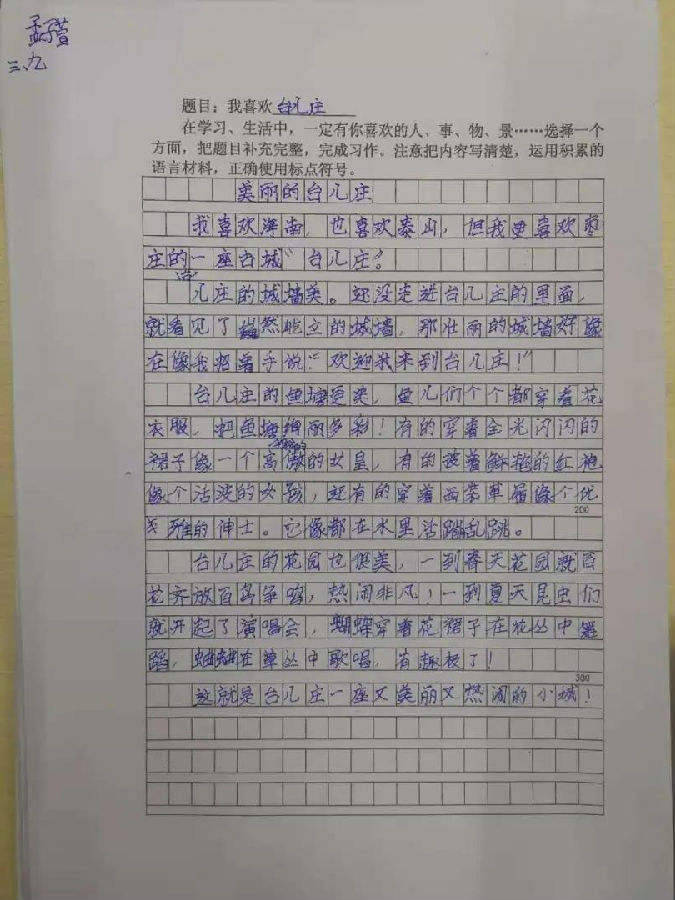 孟子萱
三、九
题目：我喜欢台儿庄
在学习、生活中，一定有你喜欢的人、事、物、景……选择一个
方面，把题目补充完整，完成习作。注意把内容写清楚，运用积累的
语言材料，正确使用标点符号。
美丽的台儿庄
我喜欢海南，也喜欢泰山，但我更喜欢枣
庄的一座古城“台儿庄”。
台儿庄的城墙美。还没走进台儿庄的里面，
就看见了巍然屹立的城墙，那壮丽的城墙好像
在像我招着手说：“欢迎我来到台儿庄！”
台儿庄的鱼塘更美，鱼儿们个个都穿着花
衣服，把鱼塘绚丽多彩！有的穿着金光闪闪的
裙子像一个高傲的女皇，有的披着鲜艳的红袍
像个活泼的女孩，还有的穿着西装革履像个优
200
雅的绅士。它像都在水里活蹦乱跳。
台儿庄的花园也很美，一到春天花园就百
花齐放百鸟争鸣，热闹非凡；一到夏天昆虫们
就开起了演唱会，蝴蝶穿着花裙子在花丛中舞
蹈，蛐蛐在草丛中歌唱，有趣极了！
300
这就是台儿庄一座又美丽又热闹的小城！